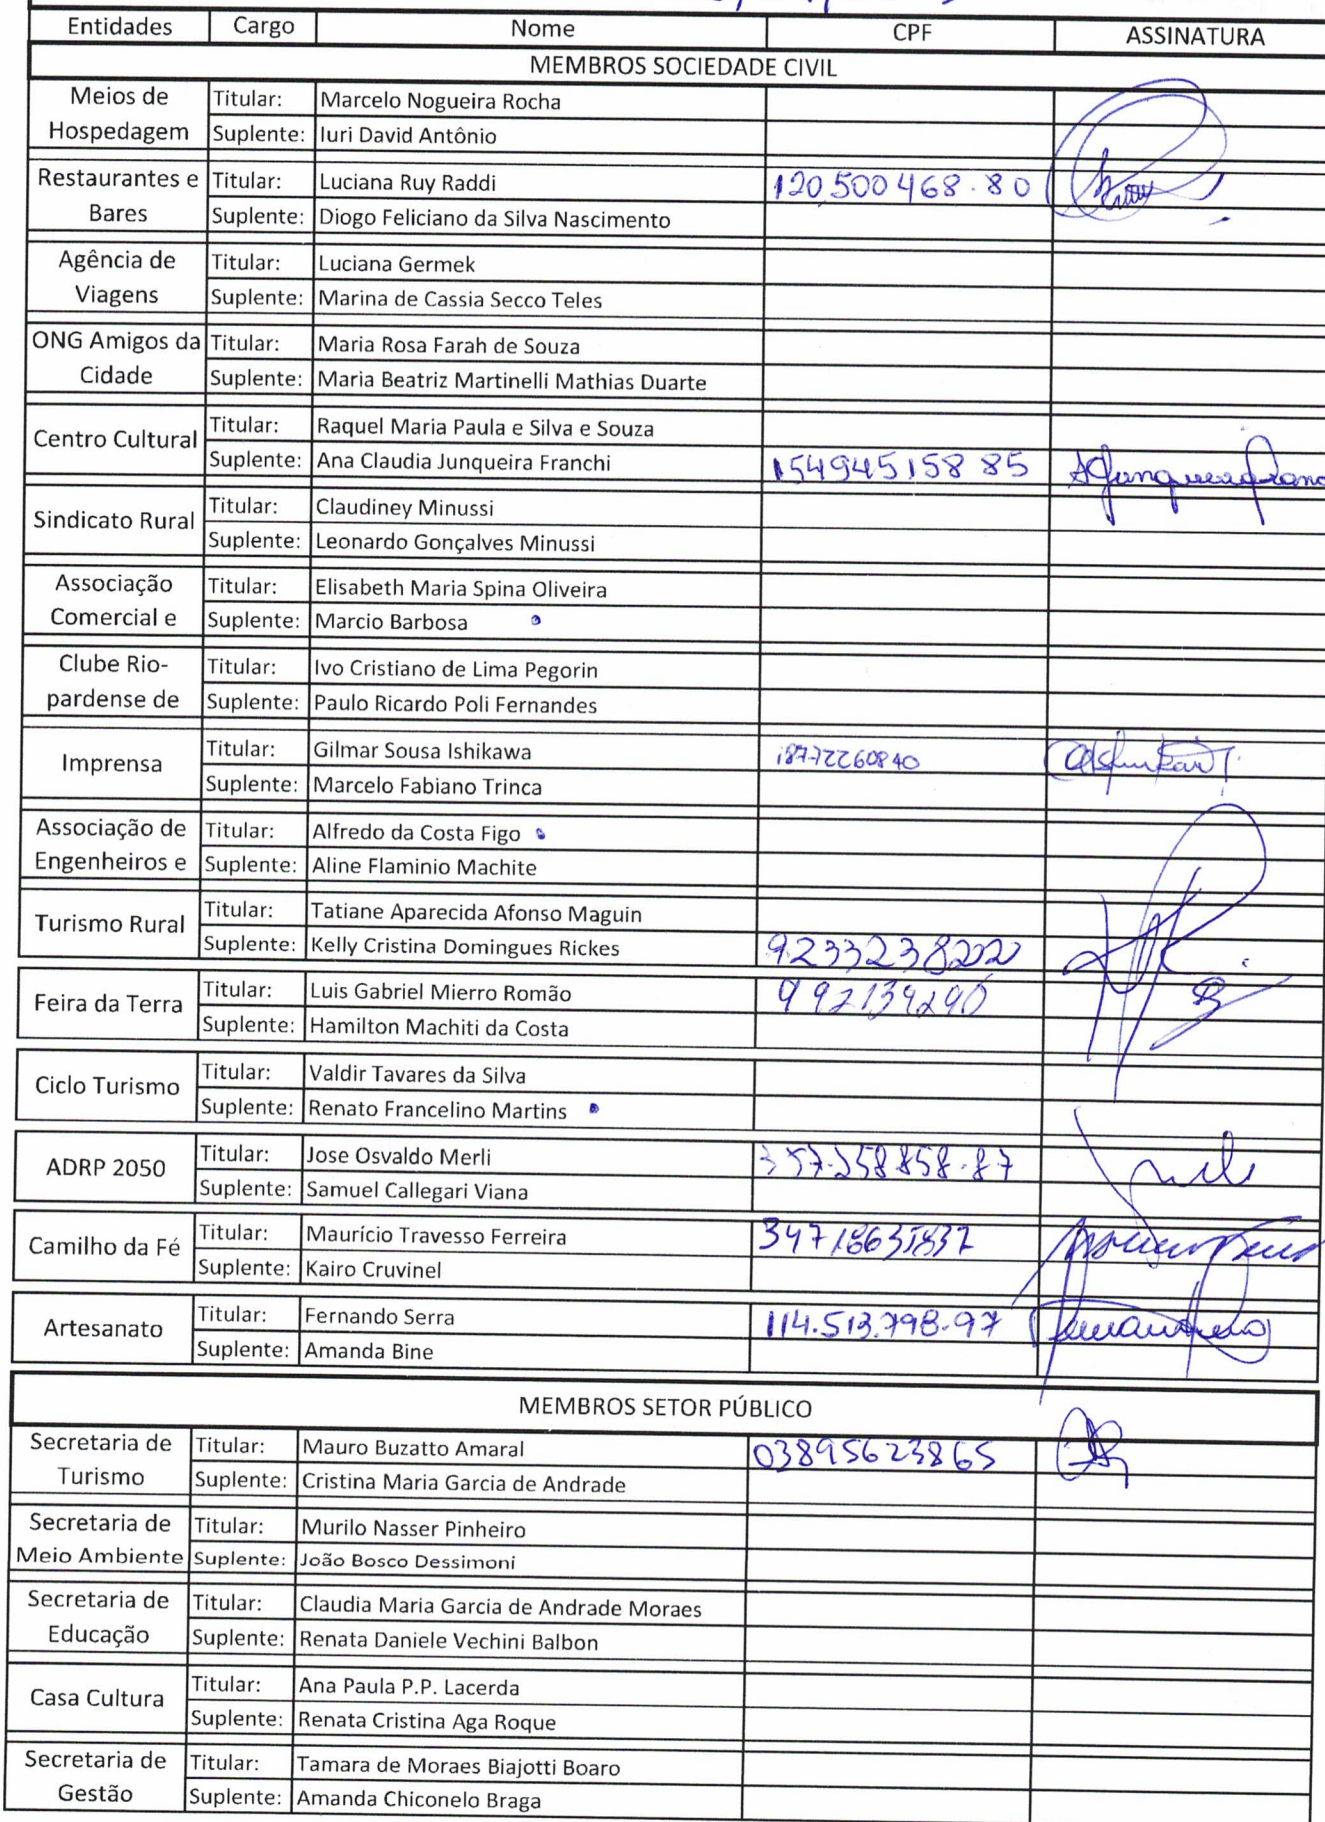 Entidades Cargo Nome CPF ASSINATURA
MEMBROS SOCIEDADE CIVIL
Meios de Hospedagem
Titular: Marcelo Nogueira Rocha
Suplente: Iuri David Antônio
Restaurantes e Bares
Titular: Luciana Ruy Raddi 120.500468-80
Suplente: Diogo Feliciano da Silva Nascimento
Agência de Viagens
Titular: Luciana Germek
Suplente: Marina de Cassia Secco Teles
ONG Amigos da Cidade
Titular: Maria Rosa Farah de Souza
Suplente: Maria Beatriz Martinelli Mathias Duarte
Centro Cultural
Titular: Raquel Maria Paula e Silva e Souza
Suplente: Ana Claudia Junqueira Franchi 154945158 85
Sindicato Rural
Titular: Claudiney Minussi
Suplente: Leonardo Gonçalves Minussi
Associação Comercial e
Titular: Elisabeth Maria Spina Oliveira
Suplente: Marcio Barbosa
Clube Rio-pardense de
Titular: Ivo Cristiano de Lima Pegorin
Suplente: Paulo Ricardo Poli Fernandes
Imprensa
Titular: Gilmar Sousa Ishikawa 18772260840
Suplente: Marcelo Fabiano Trinca
Associação de Engenheiros e
Titular: Alfredo da Costa Figo
Suplente: Aline Flaminio Machite
Turismo Rural
Titular: Tatiane Aparecida Afonso Maguin
Suplente: Kelly Cristina Domingues Rickes
Feira da Terra
Titular: Luis Gabriel Mierro Romão
Suplente: Hamilton Machiti da Costa
Ciclo Turismo
Titular: Valdir Tavares da Silva
Suplente: Renato Francelino Martins
ADRP 2050
Titular: Jose Osvaldo Merli 357.258858-87
Suplente: Samuel Callegari Viana
Camilho da Fé
Titular: Maurício Travesso Ferreira
Suplente: Kairo Cruvinel
Artesanato
Titular: Fernando Serra 114.513.798-97
Suplente: Amanda Bine
MEMBROS SETOR PÚBLICO
Secretaria de Turismo
Titular: Mauro Buzatto Amaral 03895623865
Suplente: Cristina Maria Garcia de Andrade
Secretaria de Meio Ambiente
Titular: Murilo Nasser Pinheiro
Suplente: João Bosco Dessimoni
Secretaria de Educação
Titular: Claudia Maria Garcia de Andrade Moraes
Suplente: Renata Daniele Vechini Balbon
Casa Cultura
Titular: Ana Paula P.P. Lacerda
Suplente: Renata Cristina Aga Roque
Secretaria de Gestão
Titular: Tamara de Moraes Biajotti Boaro
Suplente: Amanda Chiconelo Braga